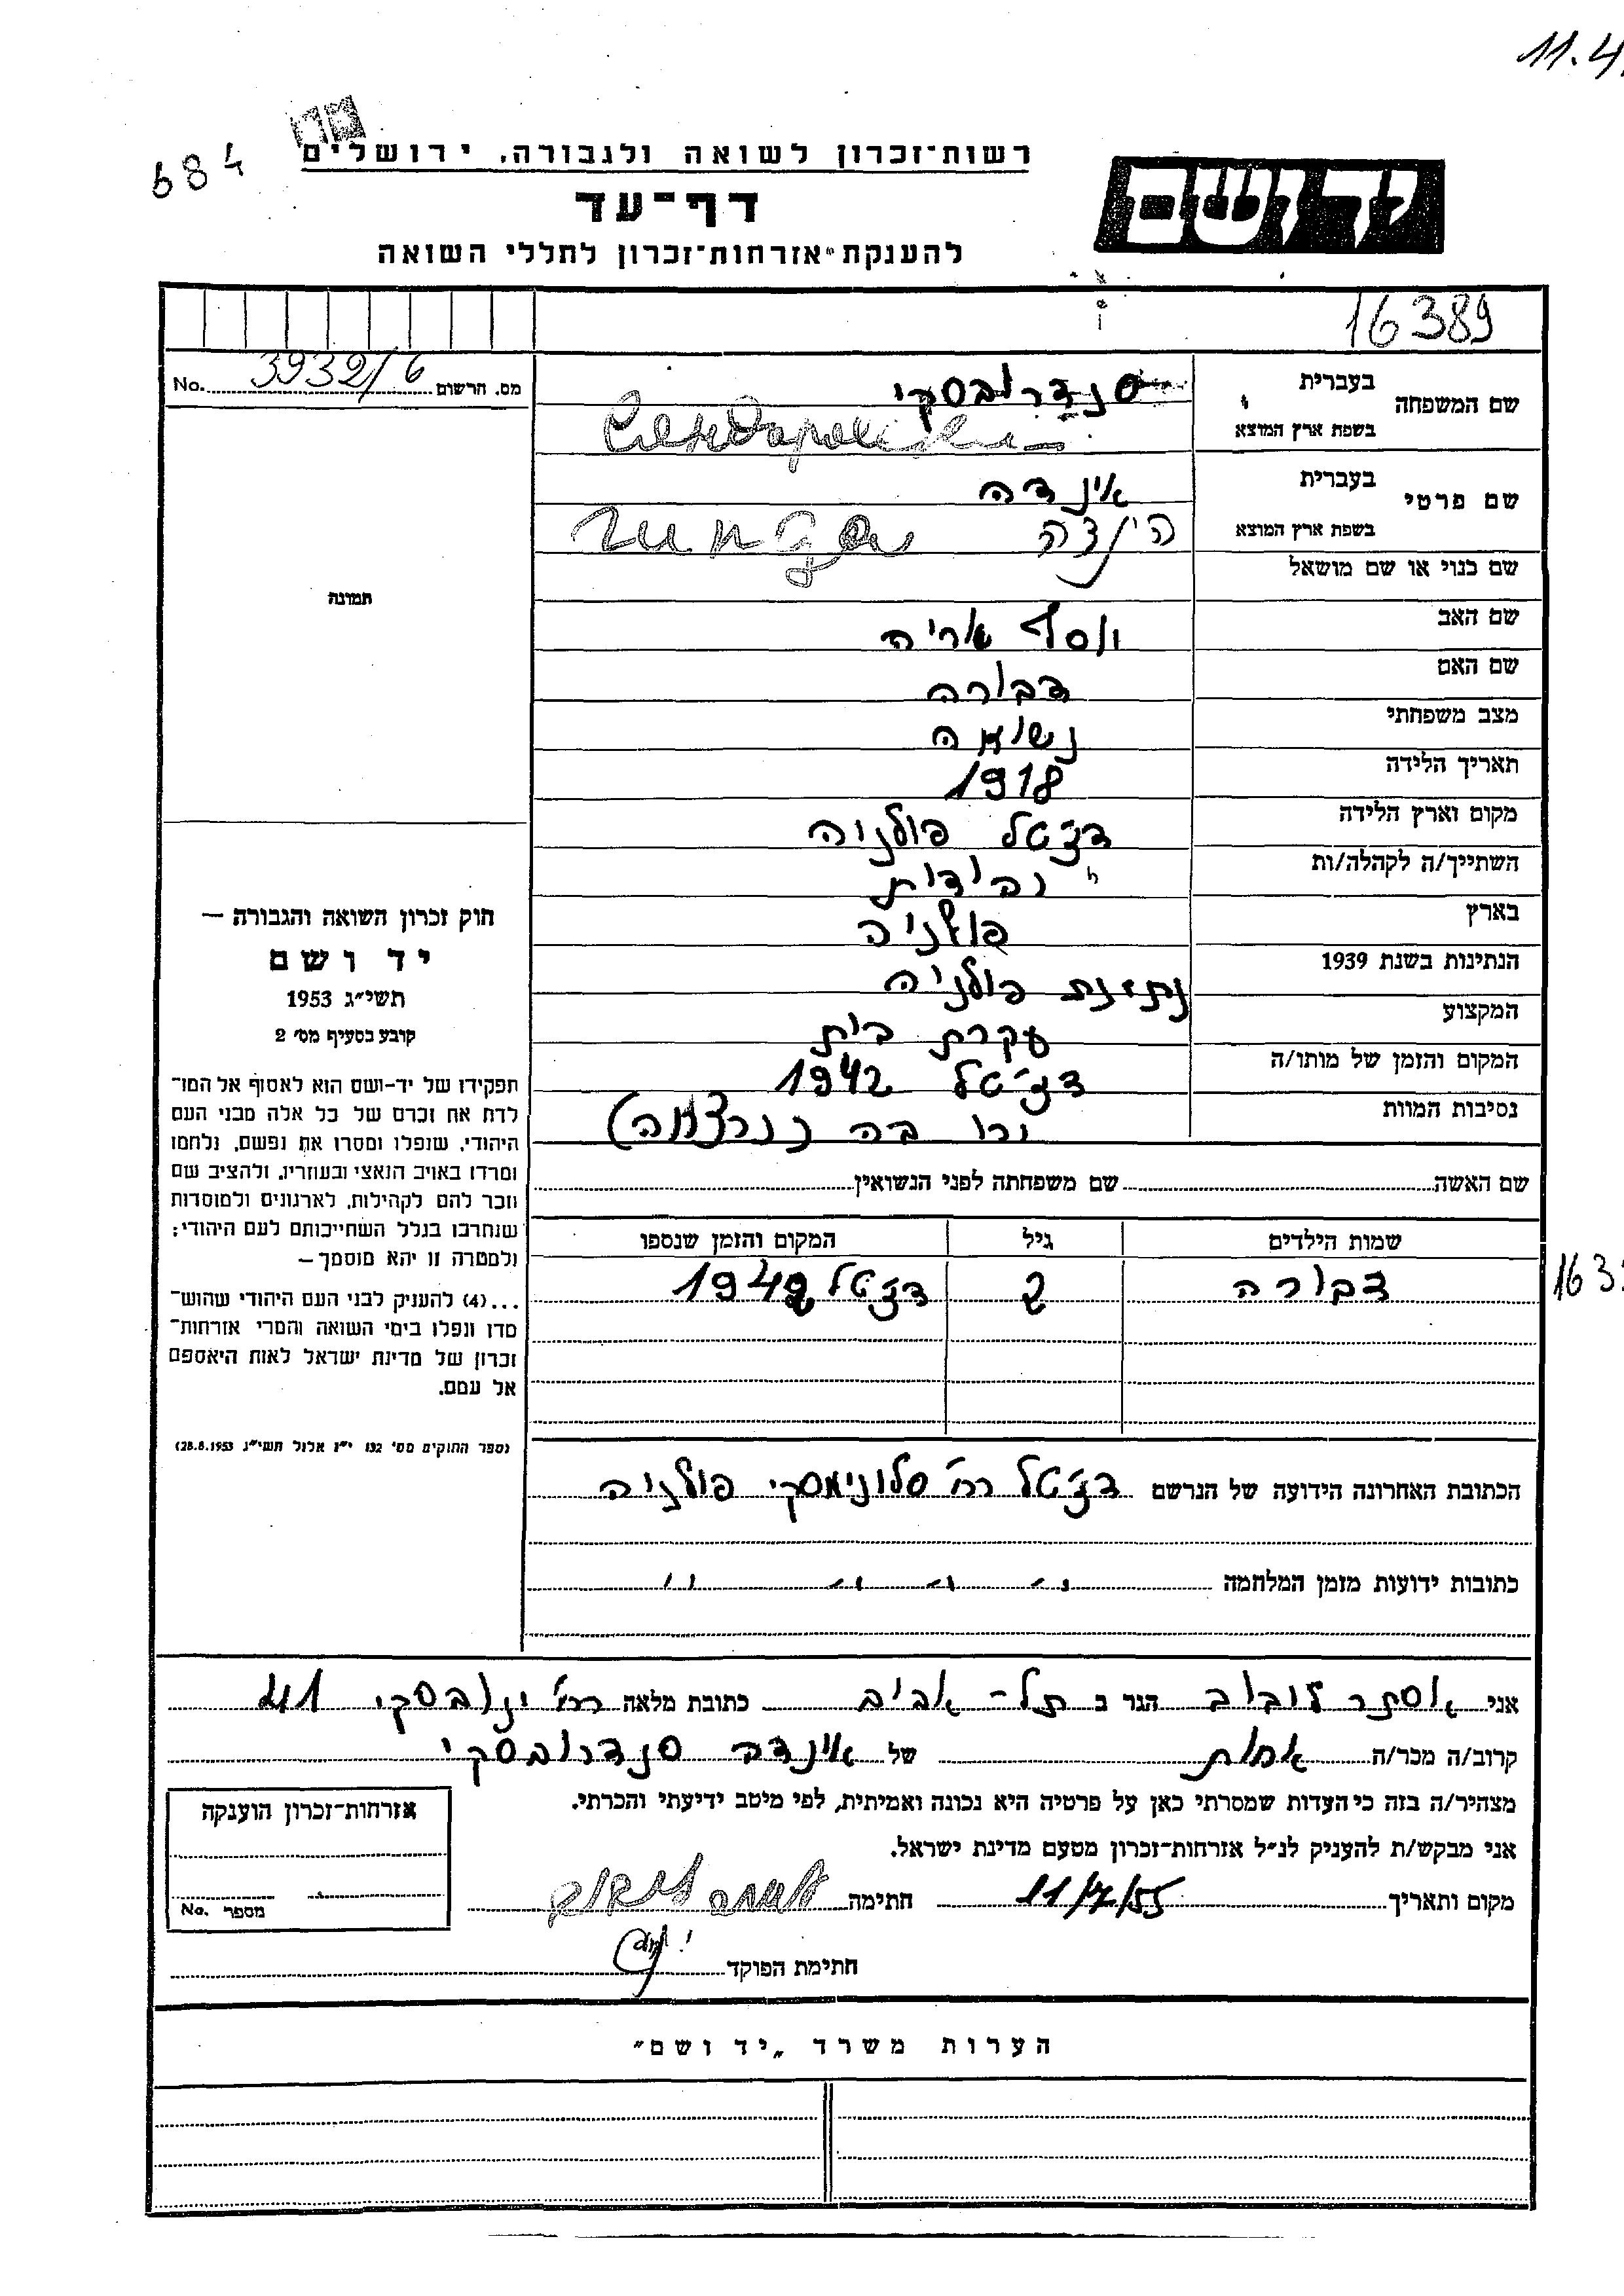 11.4
684
רשות־זכרון לשואה ולגבורה, ירושלים
דף־עד
להענקת אזרחות־זכרון לחללי השואה
יד ושם
16389
מס. הרשום 3932/6 No.
שם המשפחה
בעברית
סנדרובסקי
בשפת ארץ המוצא
שם פרטי
בעברית
אינדה
בשפת ארץ המוצא
הינדה
שם כנוי או שם מושאל
שם האב
יוסף אריה
שם האם
דבורה
מצב משפחתי
נשואה
תאריך הלידה
1918
מקום וארץ הלידה
דצ׳טל פולניה
השתייך/ה לקהלה/ות
יהודית
בארץ
פולניה
הנתינות בשנת 1939
נתינת פולניה
המקצוע
עקרת בית
המקום והזמן של מותו/ה
דצ׳טל 1942
נסיבות המוות
תמונה
חוק זכרון השואה והגבורה —
יד ושם
תשי״ג 1953
קובע בסעיף מס׳ 2
תפקידו של יד-ושם הוא לאסוף אל המו־
לדת את זכרם של כל אלה מבני העם
היהודי, שנפלו ומסרו את נפשם, נלחמו
ומרדו באויב הנאצי ובעוזריו, ולהציב שם
וזכר להם לקהילות, לארגונים ולמוסדות
שנחרבו בגלל השתייכותם לעם היהודי;
ולמטרה זו יהא מוסמך —
...(4) להעניק לבני העם היהודי שהוש־
מדו ונפלו בימי השואה והמרי אזרחות־
זכרון של מדינת ישראל לאות היאספם
אל עמם.
(ספר החוקים מס׳ 132 י״ז אלול תשי״ג 28.8.1953)
שם האשה שם משפחתה לפני הנשואין
שמות הילדים גיל המקום והזמן שנספו
דבורה 2 דצ׳טל 1942
163
הכתובת האחרונה הידועה של הנרשם דצ׳טל רח׳ סלונימסקי פולניה
כתובות ידועות מזמן המלחמה
אני אסתר לובוב הגר ב תל-אביב כתובת מלאה רח׳ ינובסקי 41
קרוב/ה מכר/ה אחות של אינדה סנדרובסקי
מצהיר/ה בזה כי העדות שמסרתי כאן על פרטיה היא נכונה ואמיתית, לפי מיטב ידיעתי והכרתי.
אני מבקש/ת להעניק לנ״ל אזרחות־זכרון מטעם מדינת ישראל.
מקום ותאריך 11/7/55 חתימה
חתימת הפוקד
אזרחות־זכרון הוענקה
מספר No.
הערות משרד „יד ושם״